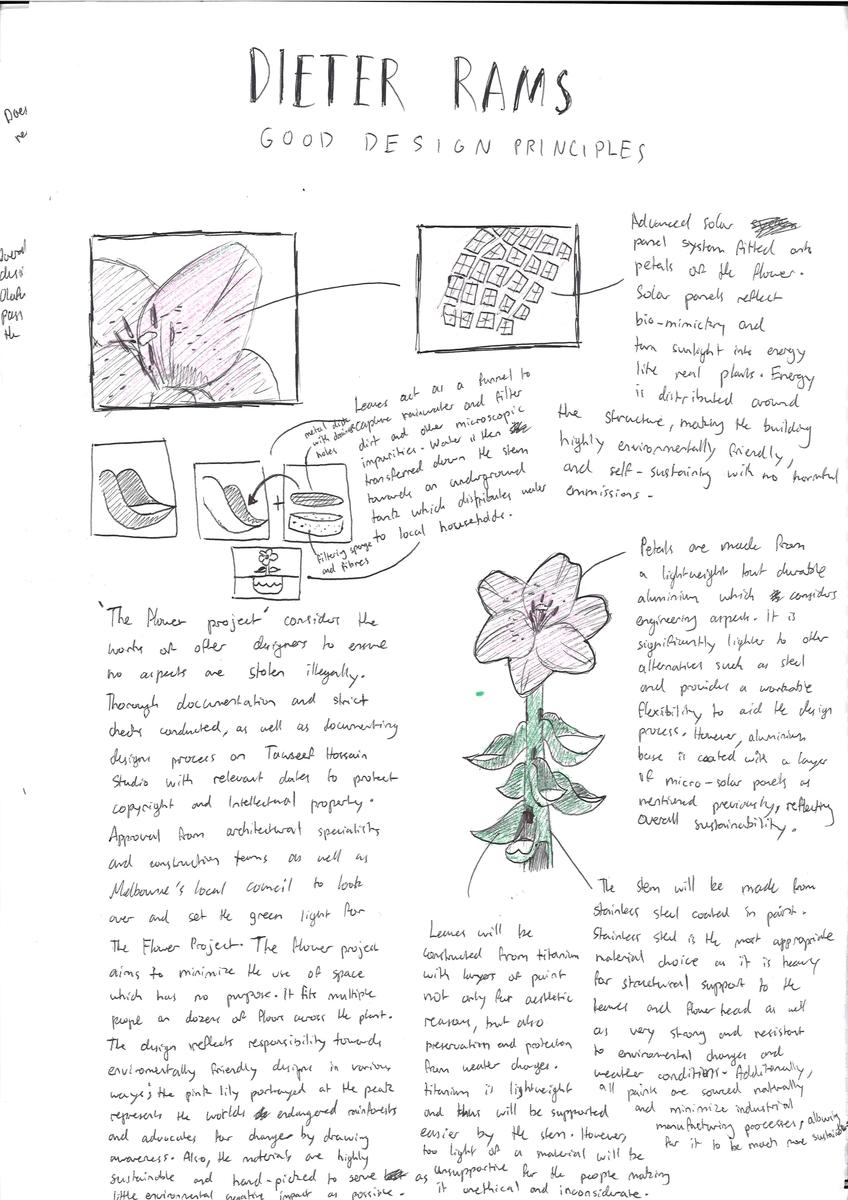 DIETER RAMS
GOOD DESIGN PRINCIPLES
Does
re
Overall
pass
the
Advanced solar
panel system fitted onto
petals of the flower.
Solar panels reflect
bio-mimicry and
turn sunlight into energy
like real plants. Energy
is distributed around
the structure, making the building
highly environmentally friendly,
and self-sustaining with no harmful
emmissions.
Leaves act as a funnel to
capture rainwater and filter
dirt and other microscopic
impurities. Water is then
transferred down the stem
towards an underground
tank which distributes water
to local households.
metal disk
with
holes
+
Filtering sponge
and fibres
"The flower project" considers the
works of other designers to ensure
no aspects are stolen illegally.
Thorough documentation and strict
checks conducted, as well as documenting
designs process on Tawseef Hossain
Studio with relevant dates to protect
copyright and Intellectual property.
Approval from architectural specialists
and construction teams as well as
Melbourne's local council to look
over and set the green light for
The Flower Project. The flower project
aims to minimize the use of space
which has no purpose. It fits multiple
people on dozens of floors across the plant.
The design reflects responsibility towards
enviromentally friendly designs in various
ways; the pink lily portrayed at the peak
represents the worlds endangered rainforests
and advocates for changes by drawing
awareness. Also, the materials are highly
sustainable and hand-picked to serve as
little environmental negative impact as possible.
Petals are made from
a lightweight but durable
aluminium which considers
engineering aspects. It is
significantly lighter to other
alternatives such as steel
and provides a workable
flexibility to aid the design
process. However, aluminium
base is coated with a layer
of micro-solar panels as
mentioned previously, reflecting
overall sustainability.
Leaves will be
constructed from titanium
with layers of paint
not only for aesthetic
reasons, but also
preservation and protection
from weater changes.
titanium is lightweight
and thus will be supported
easier by the stem. However,
too light of a material will be
unsupportive for the people making
it unethical and inconsiderate.
The stem will be made from
stainless steel coated in paint.
Stainless steel is the most appropriate
material choice as it is heavy
for structural support to the
leaves and flower head as well
as very strong and resistant
to enviromental changes and
weather conditions. Additionally,
all paints are sourced naturally
and minimize industrial
manufacturing processes, allowing
for it to be much more sustainable